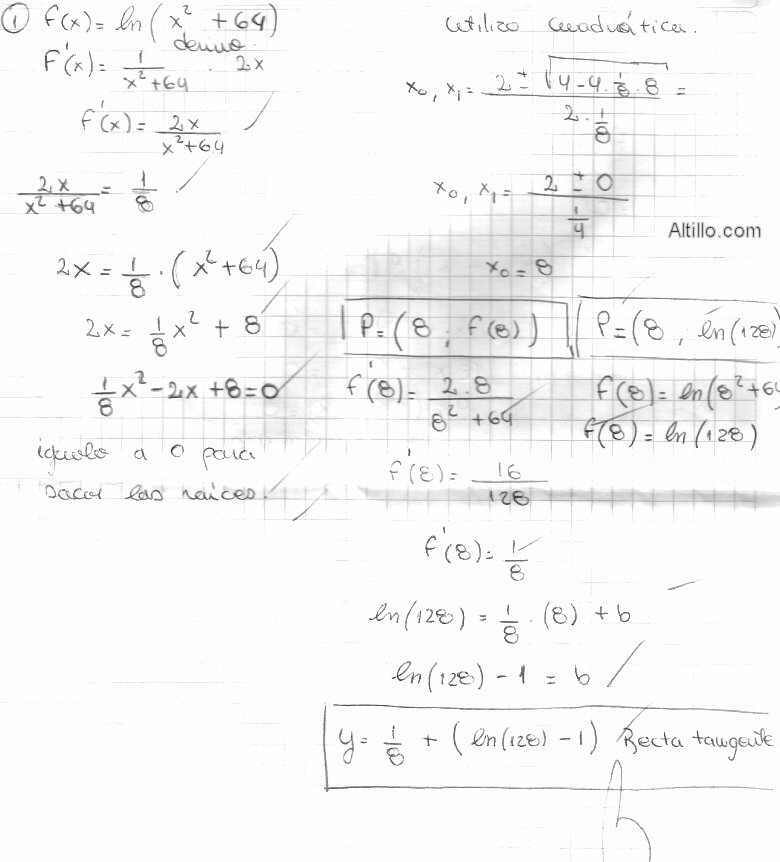 ① f(x) = ln(x² + 64)
derivo.
f'(x) = 1/(x²+64) · 2x
f'(x) = 2x/(x²+64)
2x/(x²+64) = 1/8
2x = 1/8 · (x²+64)
2x = 1/8 x² + 8
1/8 x² - 2x + 8 = 0
igualo a 0 para
sacar las raíces.
utilizo cuadrática.
x₀, x₁ = (2 ± √(4 - 4 · 1/8 · 8))/(2 · 1/8) =
x₀, x₁ = (2 ± 0)/(1/4)
Altillo.com
x₀ = 8
P = (8 ; f(8))
P = (8 , ln(128)
f'(8) = (2 · 8)/(8² + 64)
f(8) = ln(8² + 64
f(8) = ln(128)
f'(8) = 16/128
f'(8) = 1/8
ln(128) = 1/8 · (8) + b
ln(128) - 1 = b
y = 1/8 + (ln(128) - 1) Recta tangente